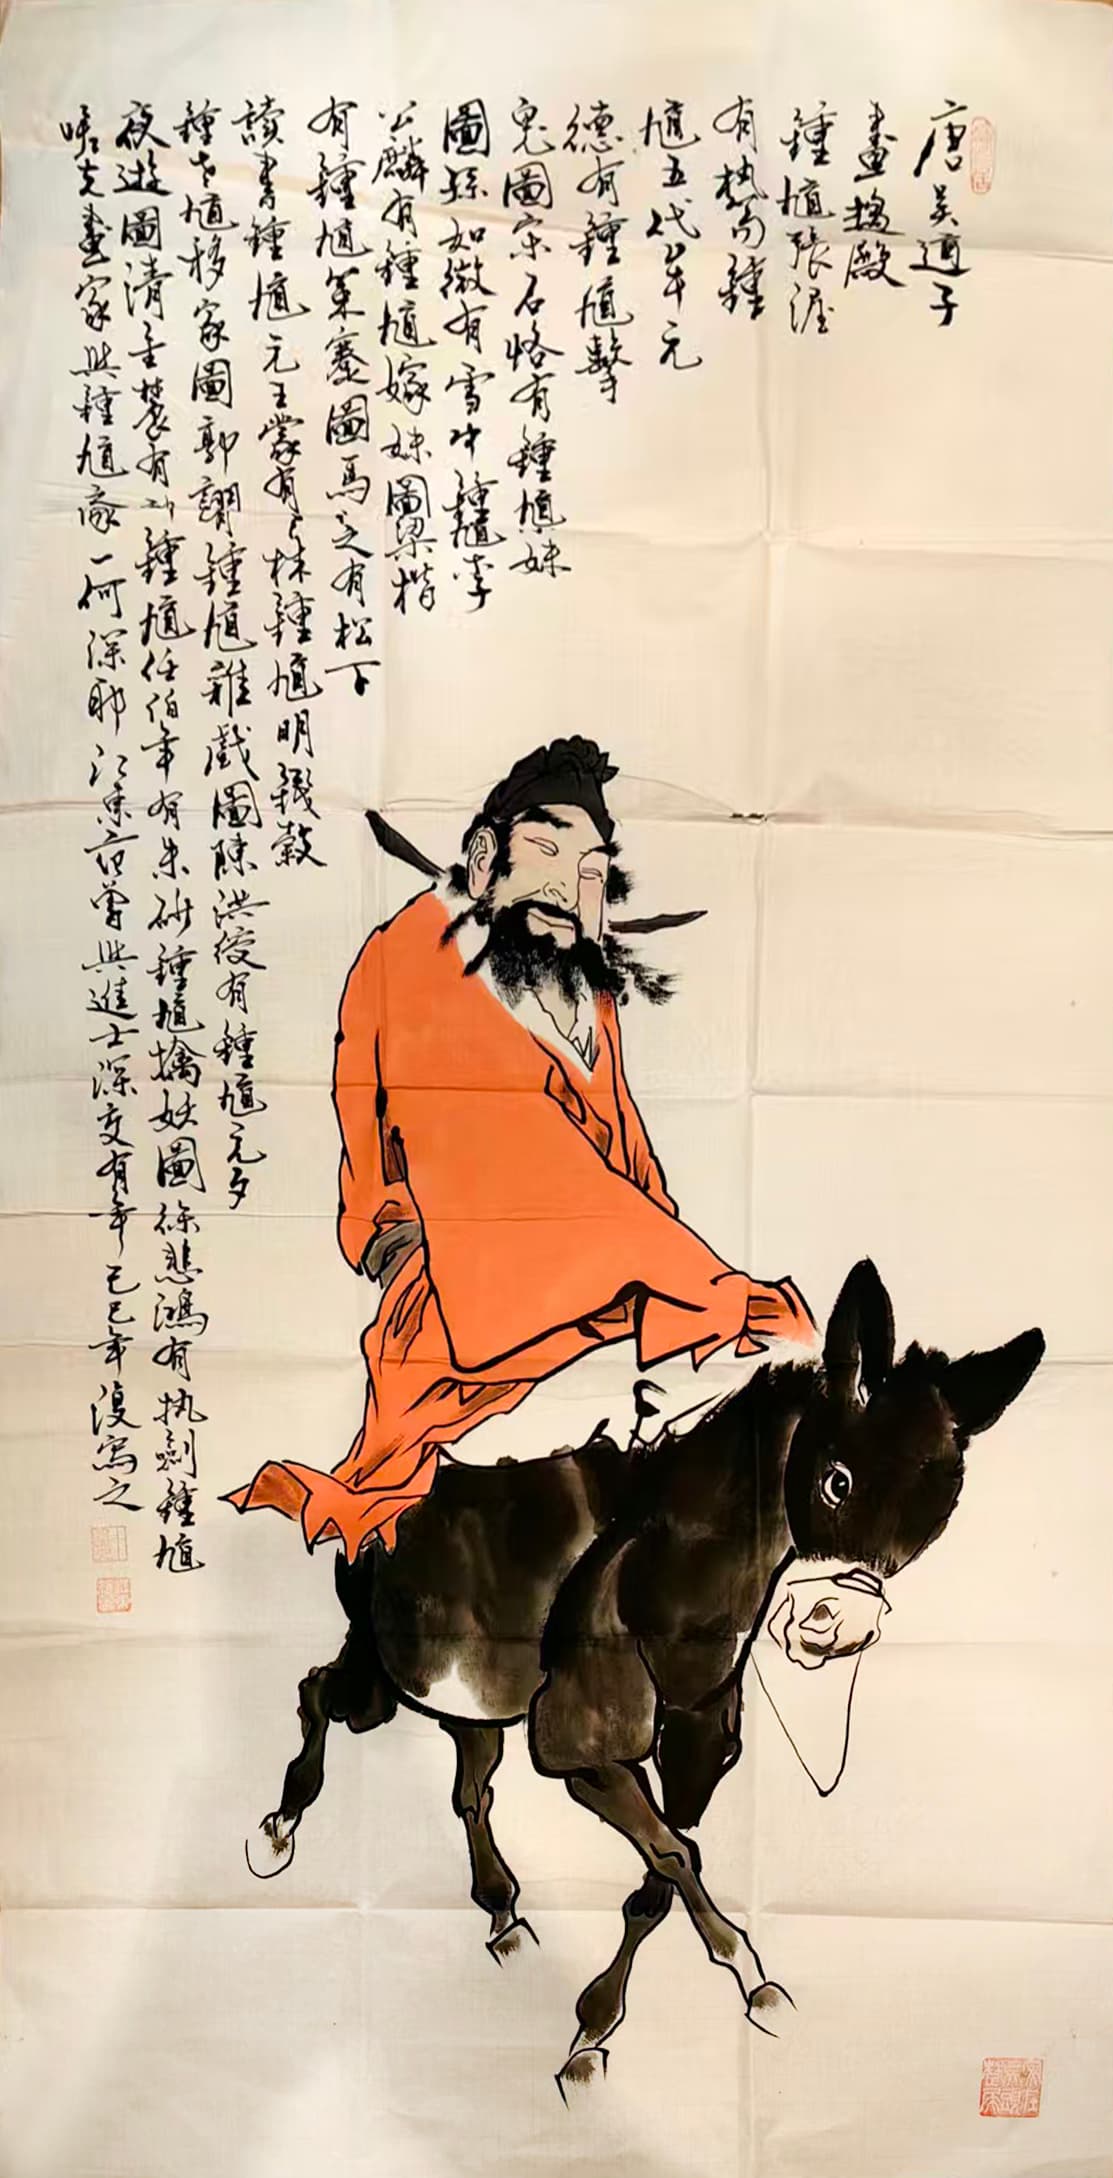 唐吴道子
畫搊殿
鍾馗張渥
有執笏鍾
馗五代牟元
德有鍾馗擊
鬼圖宗石恪有鍾馗妹
圖孫如微有雪中鍾馗李
公麟有鍾馗嫁妹圖梁楷
有鍾馗策蹇圖馬之有松下
讀書鍾馗元王蒙有林鍾馗明錢穀
鍾有馗移家圖郭詡鍾馗雜戲圖陳洪綬有鍾馗元夕
夜遊圖清金農有鍾馗任伯年有朱砂鍾馗擒妖圖徐悲鴻有执劍鍾馗
嗟夫畫家與鍾馗
一何深耶江東范曾與進士深交有年己巳年復寫之